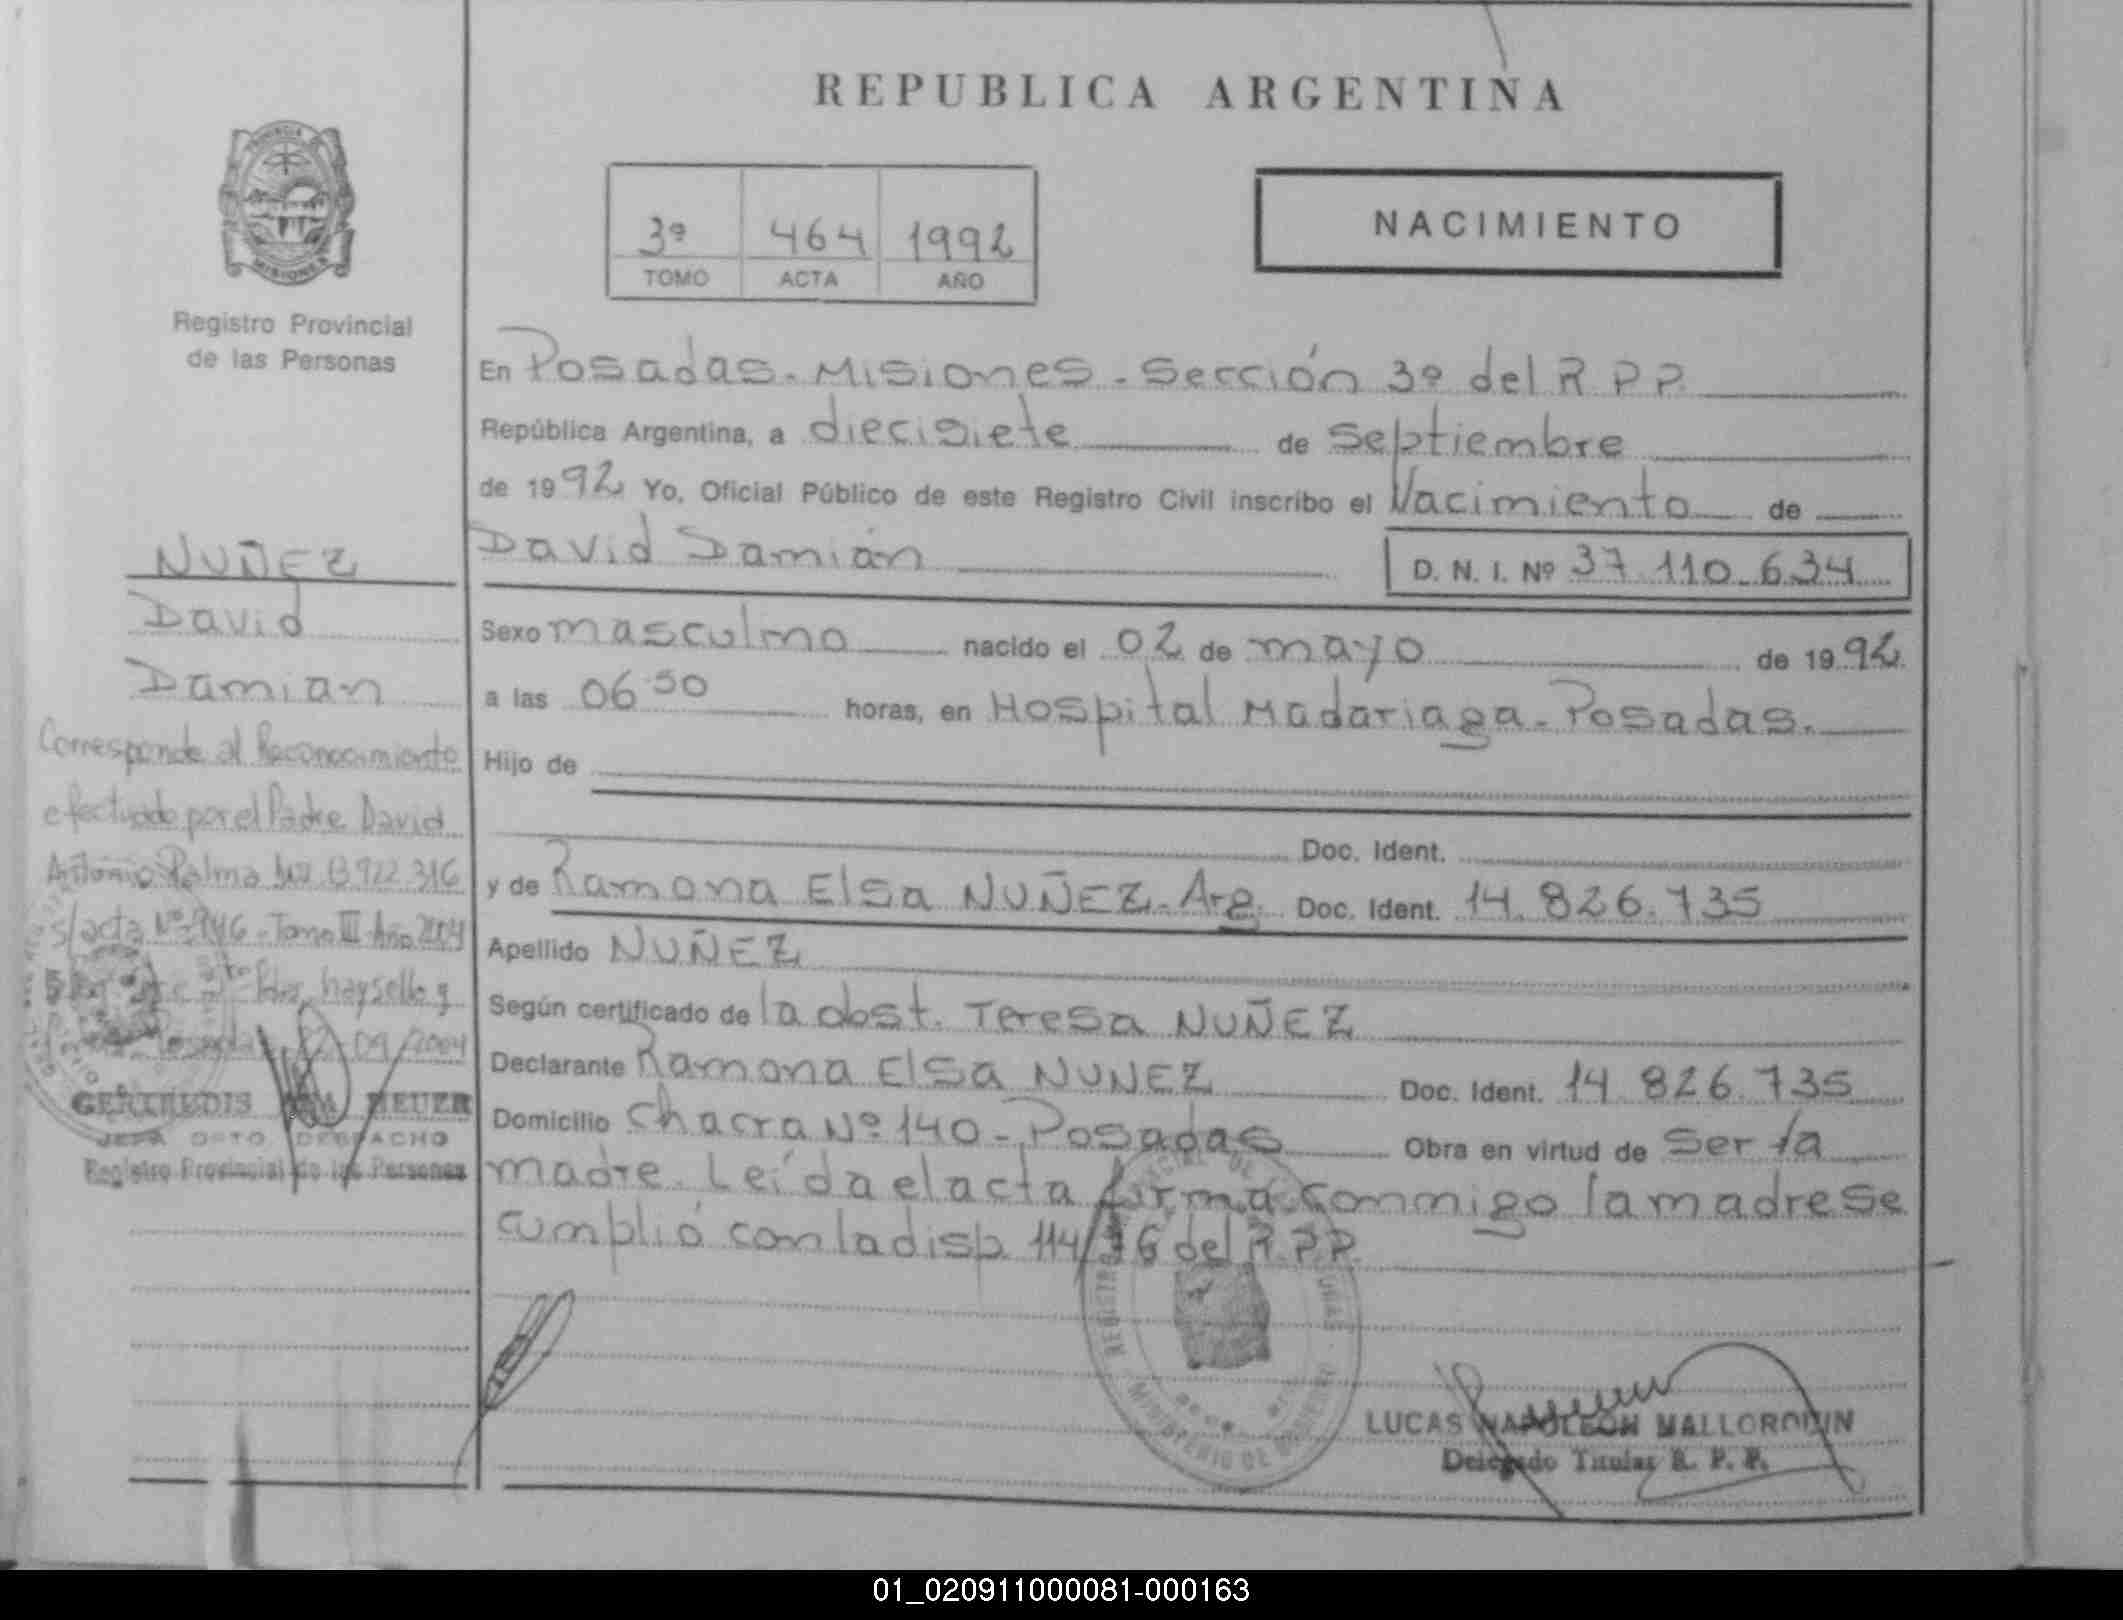 REPUBLICA ARGENTINA
3º 464 1992
TOMO ACTA AÑO
NACIMIENTO
MISIONES
Registro Provincial
de las Personas
En Posadas - Misiones - Sección 3º del R P P.
República Argentina, a diecisiete de septiembre
de 1992 Yo, Oficial Público de este Registro Civil inscribo el Nacimiento de
David Damián D. N. I. Nº 37.110.634
Sexo masculino nacido el 02 de mayo de 1992
a las 06 50 horas, en Hospital Madariaga - Posadas.
Hijo de
Doc. Ident.
y de Ramona Elsa NUÑEZ - Arg. Doc. Ident. 14.826.735
Apellido NUÑEZ
Según certificado de la obst. Teresa NUÑEZ
Declarante Ramona Elsa NUÑEZ Doc. Ident. 14.826.735
Domicilio Chacra Nº 140 - Posadas Obra en virtud de ser la
madre. Leída el acta firma conmigo la madre se
cumplió con la disp. 114/76 del R.P.P.
NUÑEZ
David
Damian
Corresponde al Reconocimiento
efectuado por el Padre David
Antonio Palma 13.922.316
s/acta Nº 946 - Tomo III Año 2004
hay sello y
Posadas 09/2004
GERTRUDIS MEUER
JEFA DPTO DESPACHO
Registro Provincial de las Personas
LUCAS NAPOLEON MALLORQUIN
Delegado Titular R. P. P.
01_020911000081-000163